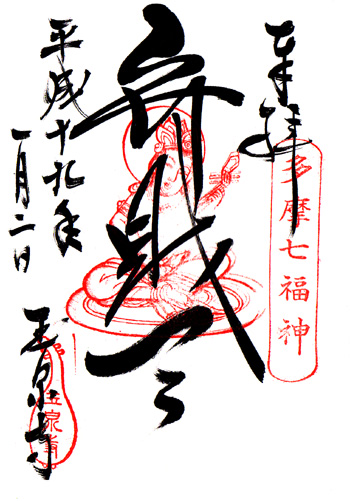 奉拝
多摩七福神
弁財天
平成十九年
一月二日
玉泉寺
玉泉寺